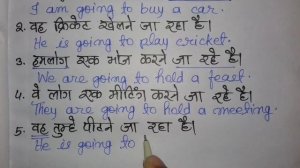 I am going to buy a car.
2. वह क्रिकेट खेलने जा रहा है।
He is going to play cricket.
3. हमलोग एक भोज करने जा रहे हैं।
We are going to hold a feast.
4. वे लोग एक मीटिंग करने जा रहे हैं।
They are going to hold a meeting.
5. वह तुम्हें पीटने जा रहा है।
He is going to